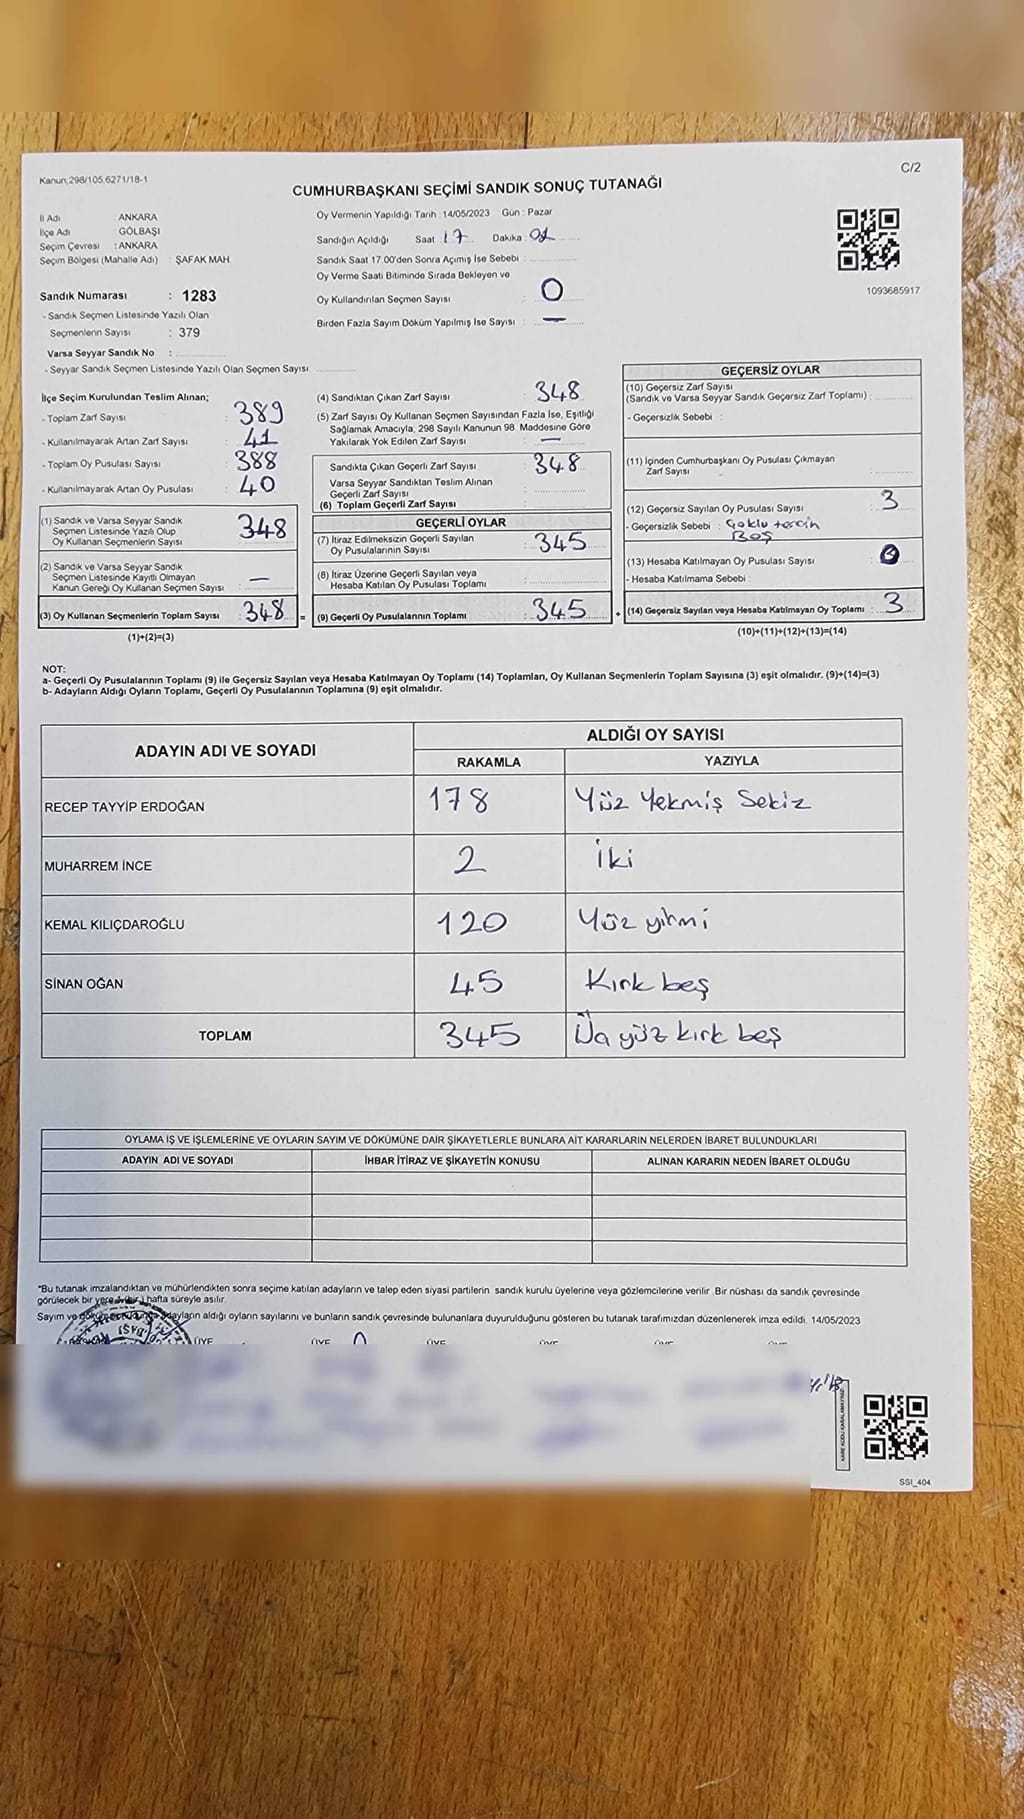 Kanun;298/105,6271/18-1
C/2
CUMHURBAŞKANI SEÇİMİ SANDIK SONUÇ TUTANAĞI
İl Adı : ANKARA
İlçe Adı : GÖLBAŞI
Seçim Çevresi : ANKARA
Seçim Bölgesi (Mahalle Adı) : ŞAFAK MAH.
Oy Vermenin Yapıldığı Tarih : 14/05/2023 Gün : Pazar
Sandığın Açıldığı Saat 17 Dakika 01
Sandık Saat 17.00'den Sonra Açımış İse Sebebi :
Oy Verme Saati Bitiminde Sırada Bekleyen ve
Oy Kullandırılan Seçmen Sayısı : 0
Birden Fazla Sayım Döküm Yapılmış İse Sayısı : —
1093685917
Sandık Numarası : 1283
- Sandık Seçmen Listesinde Yazılı Olan
Seçmenlerin Sayısı : 379
Varsa Seyyar Sandık No :
- Seyyar Sandık Seçmen Listesinde Yazılı Olan Seçmen Sayısı
İlçe Seçim Kurulundan Teslim Alınan;
- Toplam Zarf Sayısı : 389
- Kullanılmayarak Artan Zarf Sayısı : 41
- Toplam Oy Pusulası Sayısı : 388
- Kullanılmayarak Artan Oy Pusulası : 40
(1) Sandık ve Varsa Seyyar Sandık
Seçmen Listesinde Yazılı Olup
Oy Kullanan Seçmenlerin Sayısı : 348
(2) Sandık ve Varsa Seyyar Sandık
Seçmen Listesinde Kayıtlı Olmayan
Kanun Gereği Oy Kullanan Seçmen Sayısı : —
(3) Oy Kullanan Seçmenlerin Toplam Sayısı : 348 =
(1)+(2)=(3)
(4) Sandıktan Çıkan Zarf Sayısı : 348
(5) Zarf Sayısı Oy Kullanan Seçmen Sayısından Fazla İse, Eşitliği
Sağlamak Amacıyla, 298 Sayılı Kanunun 98. Maddesine Göre
Yakılarak Yok Edilen Zarf Sayısı : —
Sandıkta Çıkan Geçerli Zarf Sayısı : 348
Varsa Seyyar Sandıktan Teslim Alınan
Geçerli Zarf Sayısı :
(6) Toplam Geçerli Zarf Sayısı :
GEÇERLİ OYLAR
(7) İtiraz Edilmeksizin Geçerli Sayılan
Oy Pusulalarının Sayısı : 345
(8) İtiraz Üzerine Geçerli Sayılan veya
Hesaba Katılan Oy Pusulası Toplamı :
(9) Geçerli Oy Pusulalarının Toplamı : 345 +
GEÇERSİZ OYLAR
(10) Geçersiz Zarf Sayısı
(Sandık ve Varsa Seyyar Sandık Geçersiz Zarf Toplamı) :
- Geçersizlik Sebebi :
(11) İçinden Cumhurbaşkanı Oy Pusulası Çıkmayan
Zarf Sayısı :
(12) Geçersiz Sayılan Oy Pusulası Sayısı : 3
- Geçersizlik Sebebi : Çoklu tercih
Boş
(13) Hesaba Katılmayan Oy Pusulası Sayısı : 0
- Hesaba Katılmama Sebebi :
(14) Geçersiz Sayılan veya Hesaba Katılmayan Oy Toplamı : 3
(10)+(11)+(12)+(13)=(14)
NOT:
a- Geçerli Oy Pusulalarının Toplamı (9) ile Geçersiz Sayılan veya Hesaba Katılmayan Oy Toplamı (14) Toplamları, Oy Kullanan Seçmenlerin Toplam Sayısına (3) eşit olmalıdır. (9)+(14)=(3)
b- Adayların Aldığı Oyların Toplamı, Geçerli Oy Pusulalarının Toplamına (9) eşit olmalıdır.
ADAYIN ADI VE SOYADI ALDIĞI OY SAYISI
RAKAMLA YAZIYLA
RECEP TAYYİP ERDOĞAN 178 Yüz Yekmiş Sekiz
MUHARREM İNCE 2 İki
KEMAL KILIÇDAROĞLU 120 Yüz yihmi
SİNAN OĞAN 45 Kırk beş
TOPLAM 345 Üç yüz kırk beş
OYLAMA İŞ VE İŞLEMLERİNE VE OYLARIN SAYIM VE DÖKÜMÜNE DAİR ŞİKAYETLERLE BUNLARA AİT KARARLARIN NELERDEN İBARET BULUNDUKLARI
ADAYIN ADI VE SOYADI İHBAR İTİRAZ VE ŞİKAYETİN KONUSU ALINAN KARARIN NEDEN İBARET OLDUĞU
*Bu tutanak imzalandıktan ve mühürlendikten sonra seçime katılan adayların ve talep eden siyasi partilerin sandık kurulu üyelerine veya gözlemcilerine verilir. Bir nüshası da sandık çevresinde
görülecek bir yere 1 (bir) hafta süreyle asılır.
Sayım ve adayların aldığı oyların sayılarını ve bunların sandık çevresinde bulunanlara duyurulduğunu gösteren bu tutanak tarafımızdan düzenlenerek imza edildi. 14/05/2023
ÜYE ÜYE ÜYE ÜYE ÜYE ÜYE
KARE KODU KARALAMAYINIZ
SSI_404